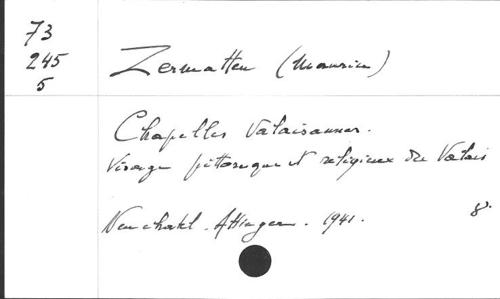 73
245
5
Zermatten (Maurice)
Chapelles Valaisannes.
Visage pittoresque et religieux du Valais
Neuchatel. Attinger. 1941. 8°.